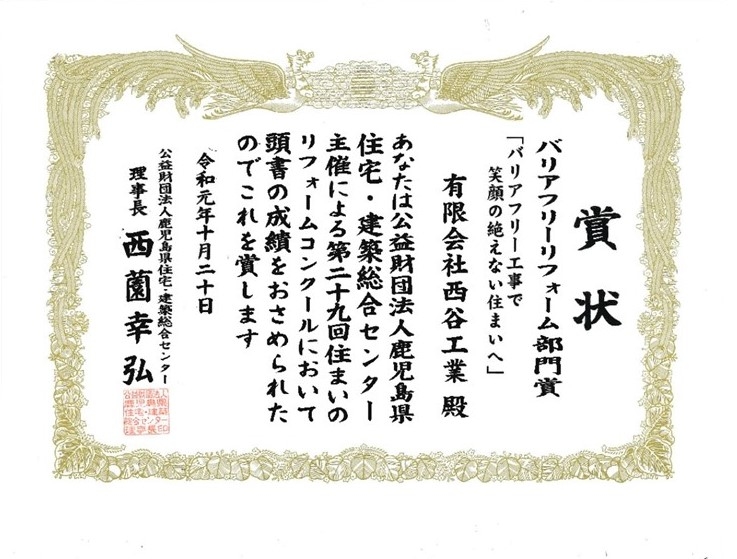 賞状
バリアフリーリフォーム部門賞
「バリアフリー工事で
笑顔の絶えない住まいへ」
有限会社西谷工業 殿
あなたは公益財団法人鹿児島県
住宅・建築総合センター
主催による第二十九回住まいの
リフォームコンクールにおいて
頭書の成績をおさめられた
のでこれを賞します
令和元年十月二十日
公益財団法人鹿児島県住宅・建築総合センター
理事長 西薗幸弘